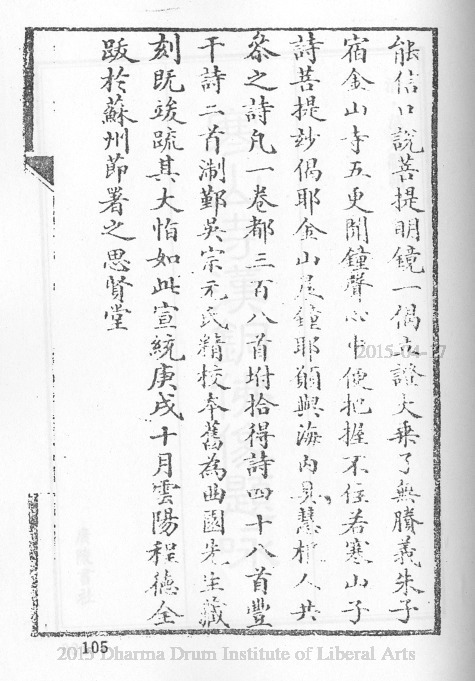 能信口說菩提明鏡一偈立證大乘了無賸義朱子
宿金山寺五更聞鐘聲心中便把握不住若寒山子
詩菩提玅偈耶金山晨鐘耶願與海內具慧根人共
叅之詩凡一卷都三百八首坿拾得詩四十八首豐
干詩二首淛鄞吳宗元民精校本舊為曲園先生藏
刻既竣䟽其大恉如此宣統庚戌十月雲陽程德全
跋於蘇州節署之思賢堂
2015-04-17
105
2015 Dharma Drum Institute of Liberal Arts